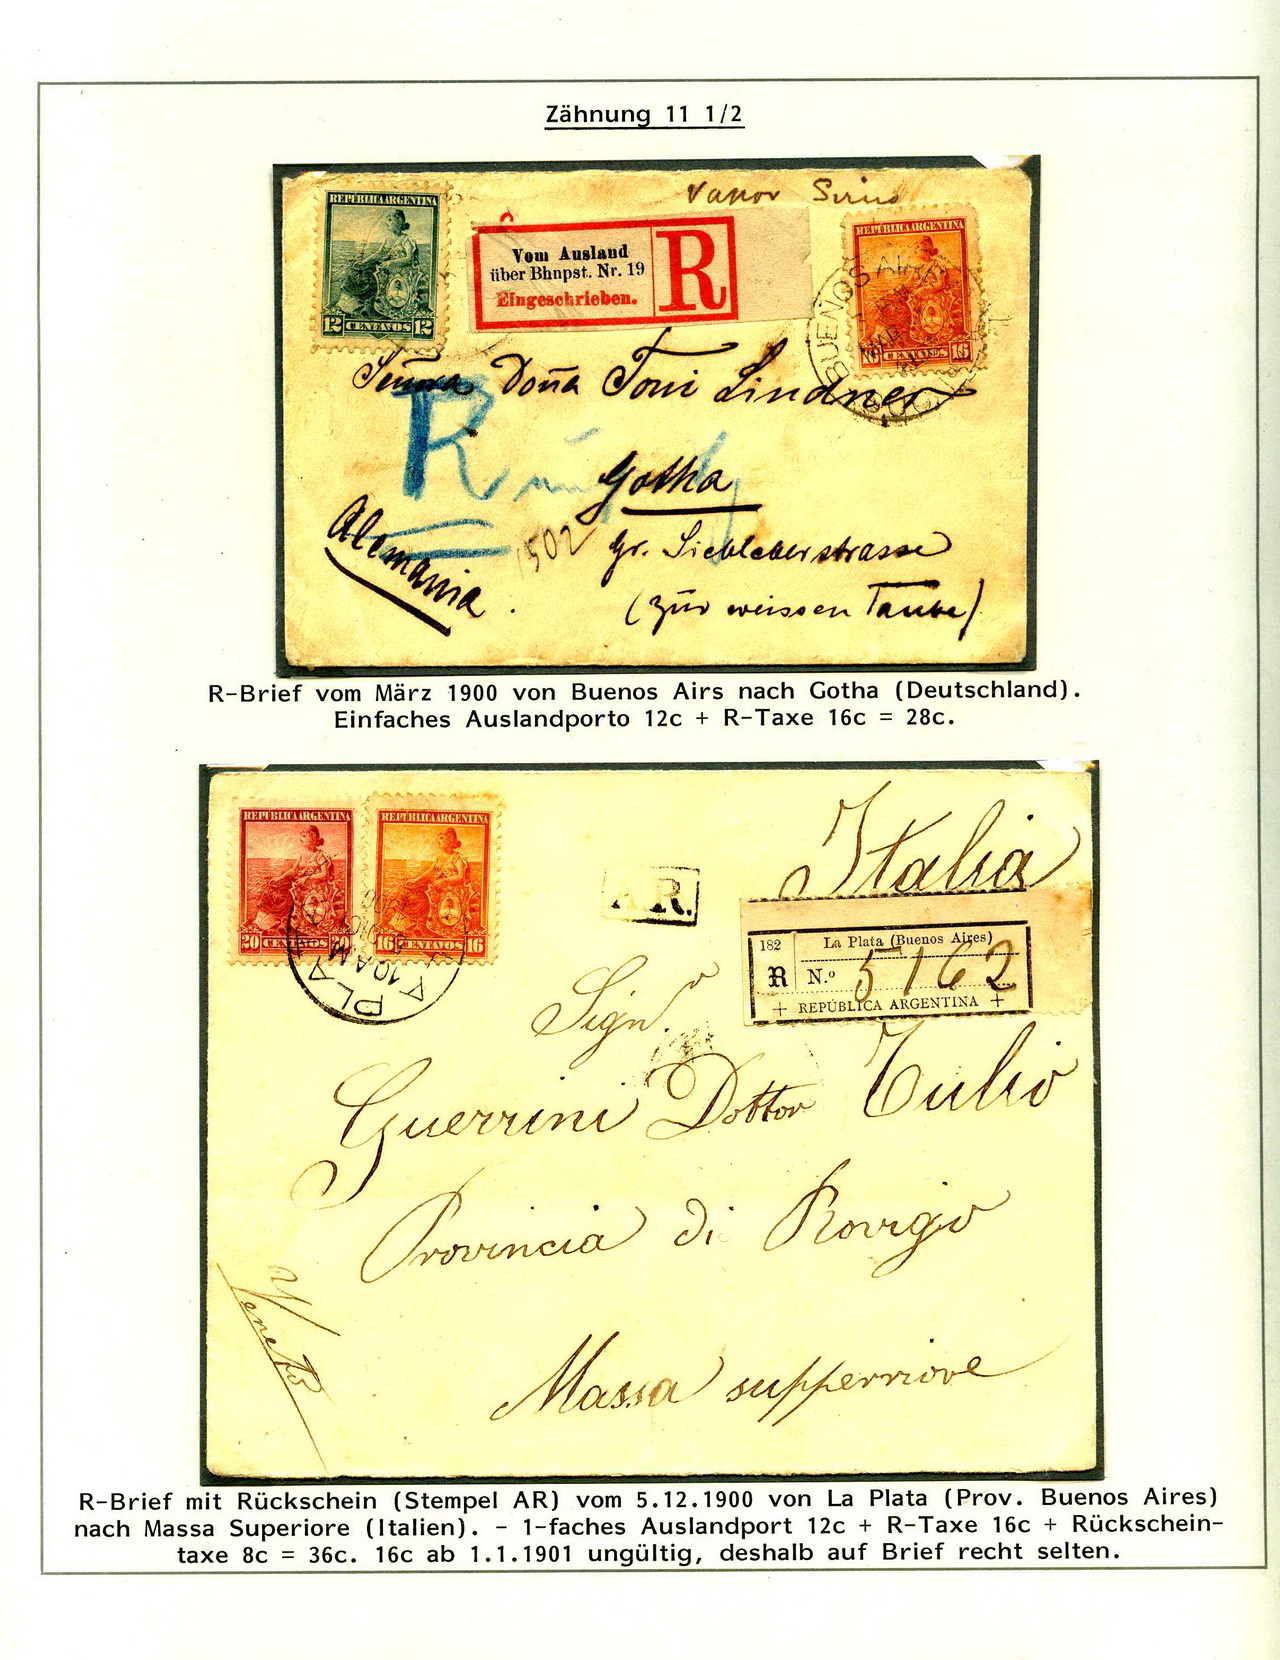 Zähnung 11 1/2
Vapor Sirio
REPUBLICA ARGENTINA
12 CENTAVOS 12
Vom Ausland
über Bhnpst. Nr. 19
Eingeschrieben.
R
REPUBLICA ARGENTINA
16 CENTAVOS 16
BUENOS AIRES
Señora Doña Toni Lindner
R
Gotha
Alemania.
1502
Gr. Siebleberstrasse
(Zur weissen Taube)
R-Brief vom März 1900 von Buenos Airs nach Gotha (Deutschland).
Einfaches Auslandporto 12c + R-Taxe 16c = 28c.
REPUBLICA ARGENTINA
20 CENTAVOS 20
REPUBLICA ARGENTINA
16 CENTAVOS 16
LA PLATA
10 AM
A.R.
Italia
182
R
La Plata (Buenos Aires)
N.º 5162
+ REPÚBLICA ARGENTINA +
Sign.r
Guerrini Dottor Tulio
Provincia di Rovigo
Veneto
Massa supperriore
R-Brief mit Rückschein (Stempel AR) vom 5.12.1900 von La Plata (Prov. Buenos Aires)
nach Massa Superiore (Italien). - 1-faches Auslandport 12c + R-Taxe 16c + Rückschein-
taxe 8c = 36c. 16c ab 1.1.1901 ungültig, deshalb auf Brief recht selten.